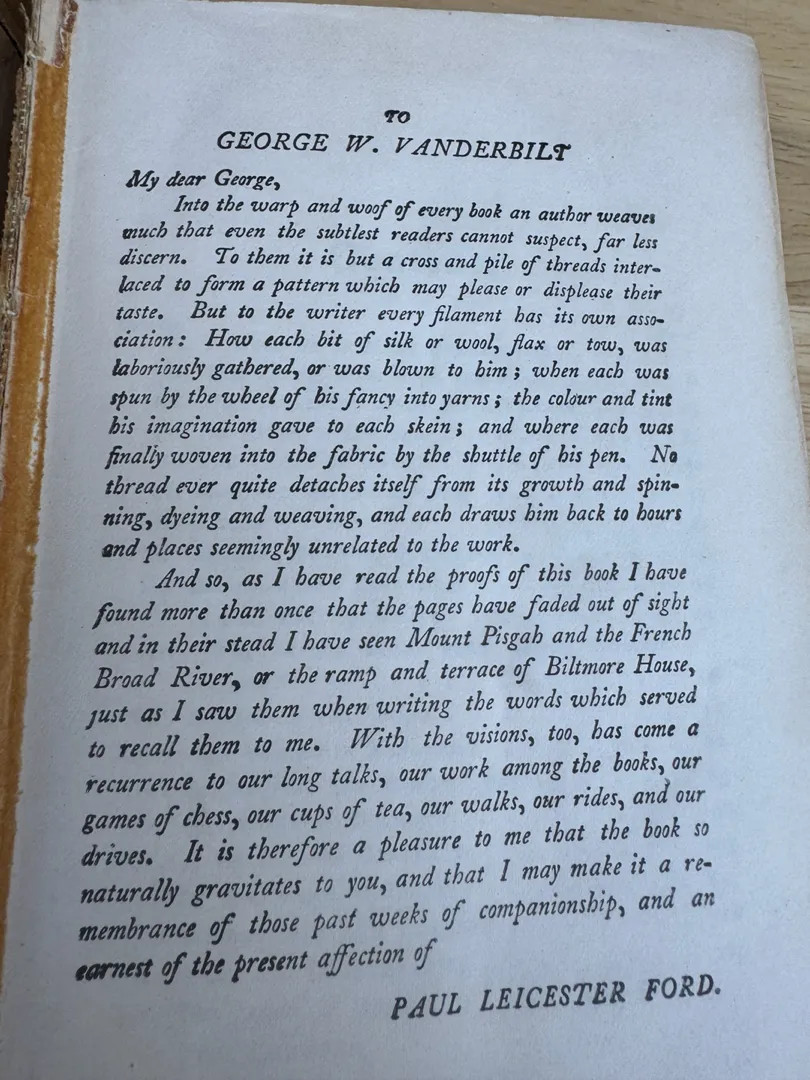 TO
GEORGE W. VANDERBILT
My dear George,
Into the warp and woof of every book an author weaves
much that even the subtlest readers cannot suspect, far less
discern. To them it is but a cross and pile of threads inter-
laced to form a pattern which may please or displease their
taste. But to the writer every filament has its own asso-
ciation: How each bit of silk or wool, flax or tow, was
laboriously gathered, or was blown to him; when each was
spun by the wheel of his fancy into yarns; the colour and tint
his imagination gave to each skein; and where each was
finally woven into the fabric by the shuttle of his pen. No
thread ever quite detaches itself from its growth and spin-
ning, dyeing and weaving, and each draws him back to hours
and places seemingly unrelated to the work.
And so, as I have read the proofs of this book I have
found more than once that the pages have faded out of sight
and in their stead I have seen Mount Pisgah and the French
Broad River, or the ramp and terrace of Biltmore House,
just as I saw them when writing the words which served
to recall them to me. With the visions, too, has come a
recurrence to our long talks, our work among the books, our
games of chess, our cups of tea, our walks, our rides, and our
drives. It is therefore a pleasure to me that the book so
naturally gravitates to you, and that I may make it a re-
membrance of those past weeks of companionship, and an
earnest of the present affection of
PAUL LEICESTER FORD.